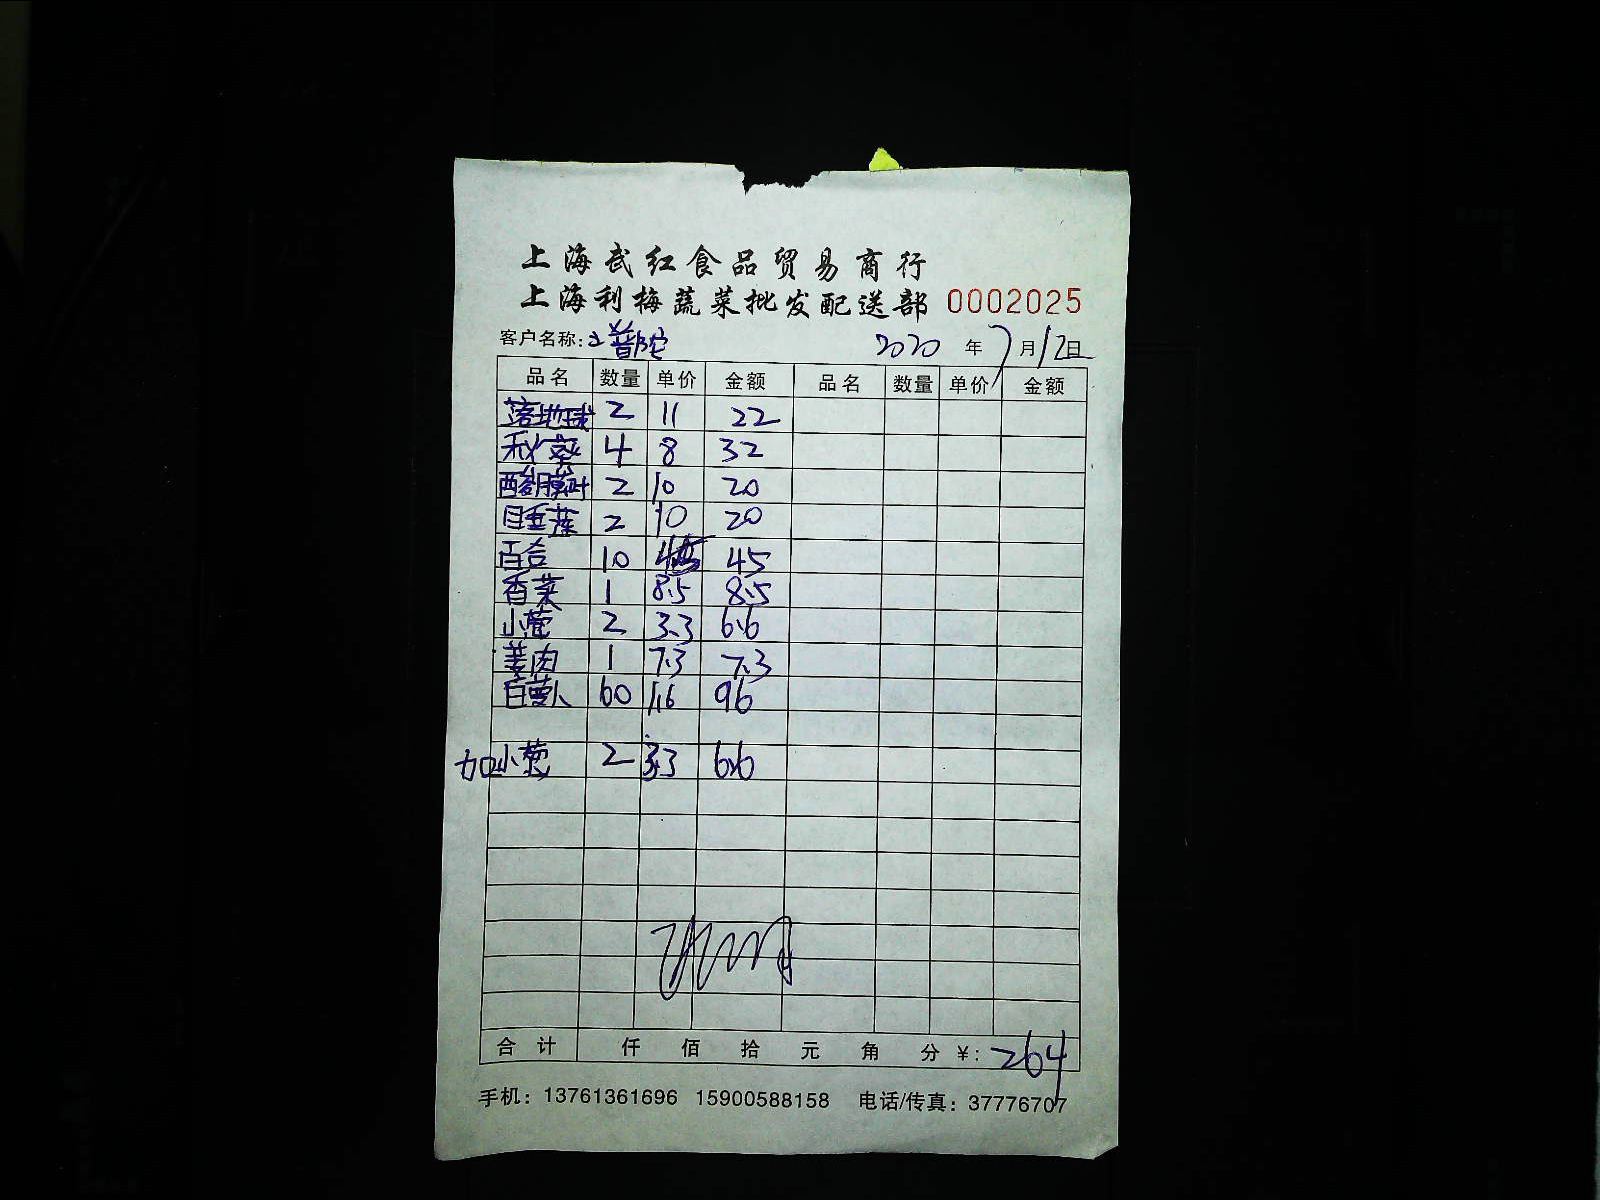 上海武红食品贸易商行
上海利梅蔬菜批发配送部 0002025
客户名称: 普陀 2020 年 7 月 12 日
品名 数量 单价 金额 品名 数量 单价 金额
落地球 2 11 22
秋葵 4 8 32
2 10 20
2 10 20
百合 10 45
香菜 1 8.5 8.5
小葱 2 3.3 6.6
姜肉 1 7.3 7.3
白萝卜 60 1.6 96
加小葱 2 3.3 6.6
合计 仟 佰 拾 元 角 分 ¥: 264
手机: 13761361696 15900588158 电话/传真: 37776707